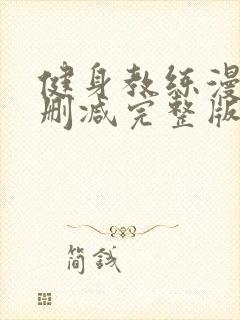 健身教练漫
删减完整版
简钱